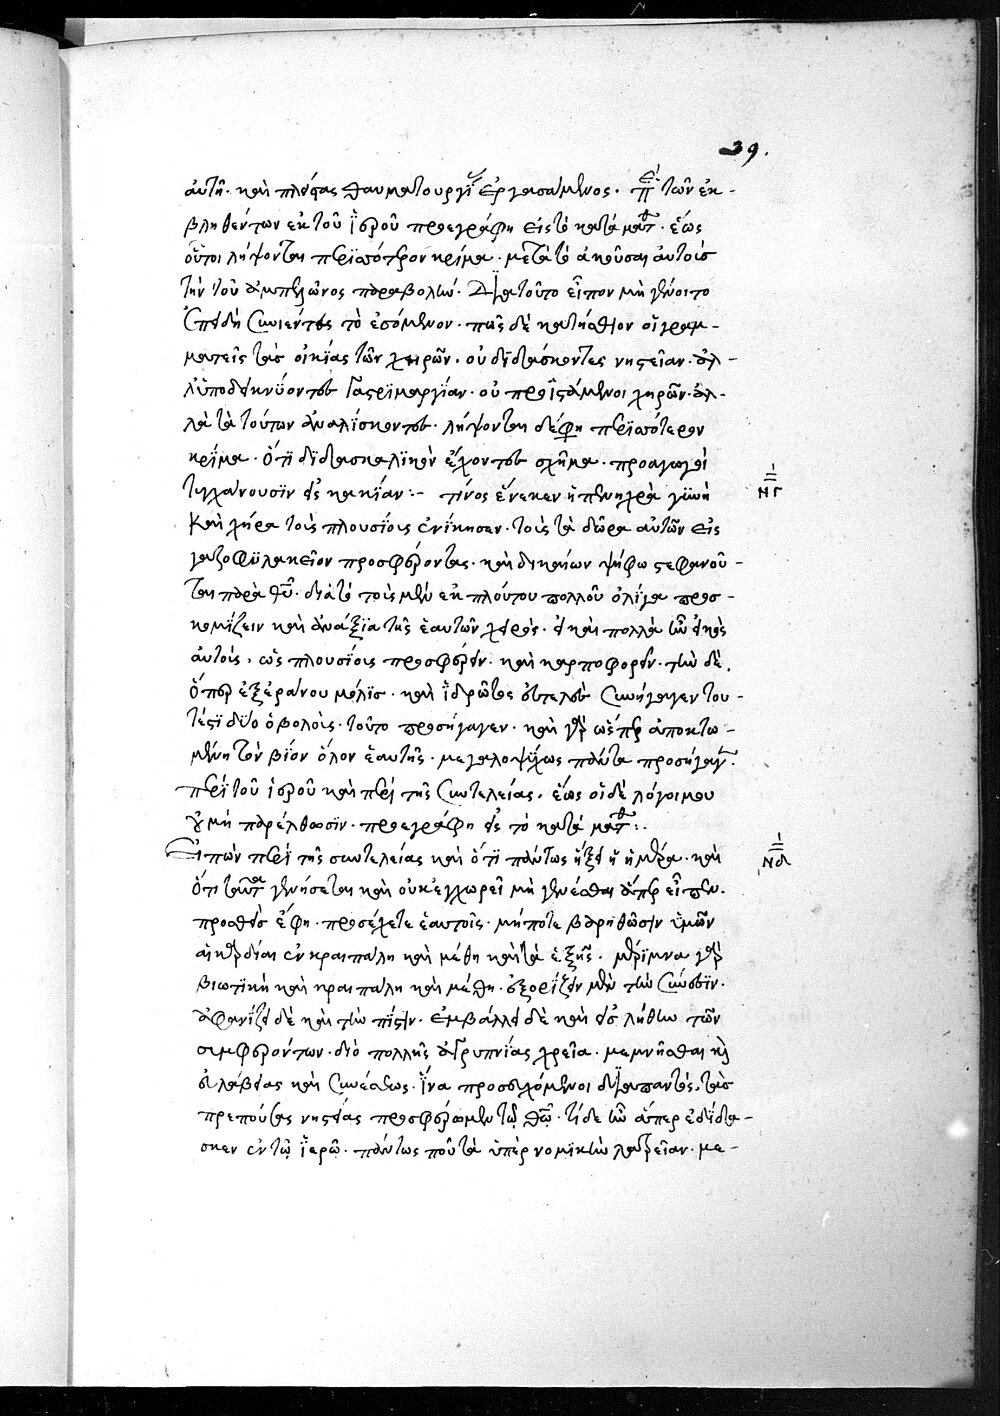 39.
αὐτῆ. καὶ πλείστας θαυματουργίας ἐργασάμενος. περὶ τῶν ἐκ-
βληθέντων ἐκ τοῦ ἱεροῦ προεγράφη εἰς τὸ κατὰ ματθ. ἕως
οὗτοι λήψονται περισσότερον κρίμα. μετὰ τὸ ἀκοῦσαι αὐτοὺς
τὴν τοῦ ἀμπελῶνος παραβολὴν. διὰ τοῦτο εἶπον μὴ γένοιτο
ἐπειδὴ συνιέντες τὸ ἐσόμενον. πῶς δὲ κατήσθιον οἱ γραμ-
ματεῖς τὰς οἰκίας τῶν χηρῶν. οὐ διδάσκοντες νηστείαν. ἀλ-
λ' ὑποδεικνύοντες γαστριμαργίαν. οὐ προϊστάμενοι χηρῶν. ἀλ-
λὰ τὰ τούτων ἀναλίσκοντες. λήψονται δέ φησι περισσότερον
κρίμα. ὅτι διδασκαλικὸν ἔχοντες σχῆμα. προαγωγοὶ
τυγχάνουσιν εἰς κακίαν :- τίνος ἕνεκεν ἡ πενιχρὰ γυνὴ
ΝΓ
καὶ χήρα τοὺς πλουσίους ἐνίκησεν. τοὺς τὰ δῶρα αὐτῶν εἰς
γαζοφυλακεῖον προσφέροντας. καὶ δικαίων ψήφω στεφανοῦ-
ται παρὰ θῦ. διὰ τὸ τοὺς μὲν ἐκ πλούτου πολλοῦ ὀλίγα προσ-
κομίζειν καὶ ἀνάξια τῆς ἑαυτῶν χειρός. εἰ καὶ πολλὰ ἦν εἰκὸς
αὐτοὺς, ὡς πλουσίους προσφέρειν. καὶ καρποφορεῖν. τὴν δὲ.
ὅπερ ἐξ ἐράνου μόλις. καὶ ἱδρῶτος εὐτελῶς συνήγαγεν του-
τέστι δύο ὀβολοὺς. τοῦτο προσήγαγεν. καὶ γὰρ ὥσπερ ἀποκτω-
μένη τὸν βίον ὅλον ἑαυτῆς. μεγαλοψύχως πάντα προσήγαγεν.
περὶ τοῦ ἱεροῦ καὶ περὶ τῆς συντελείας. ἕως οἱ δὲ λόγοι μου
οὐ μὴ παρέλθωσιν. προεγράφη εἰς τὸ κατὰ ματθ :.
Εἰπὼν περὶ τῆς συντελείας καὶ ὅτι πάντως ἥξει ἡ ἡμέρα. καὶ
ΝΔ
ὅτι ταῦτα γενήσεται καὶ οὐκ ἐγχωρεῖ μὴ γενέσθαι ἅπερ εἶπεν.
προσθεὶς ἔφη. προσέχετε ἑαυτοῖς. μήποτε βαρηθῶσιν ὑμῶν
αἱ καρδίαι ἐν κραιπάλη καὶ μέθη καὶ τὰ ἑξῆς. μέριμνα γὰρ
βιωτικὴ καὶ κραιπάλη καὶ μέθη. ἐξορίζει μὲν τὴν σύνεσιν.
ἀφανίζει δὲ καὶ τὴν πίστιν. ἐμβάλλει δὲ καὶ εἰς λήθην τῶν
συμφερόντων. διὸ πολλῆς ἀγρυπνίας χρεία. μεμνῆσθαι καὶ
εὐλαβείας καὶ συνέσεως. ἵνα προσευχόμενοι διὰ παντὸς, τὰς
πρεπούσας νηστείας προσφέρωμεν τῷ θῷ. τί δὲ ἦν ἅπερ ἐδίδα-
σκεν ἐν τῷ ἱερῷ. πάντως που τὰ ὑπὲρ νομικὴν λατρείαν. με-